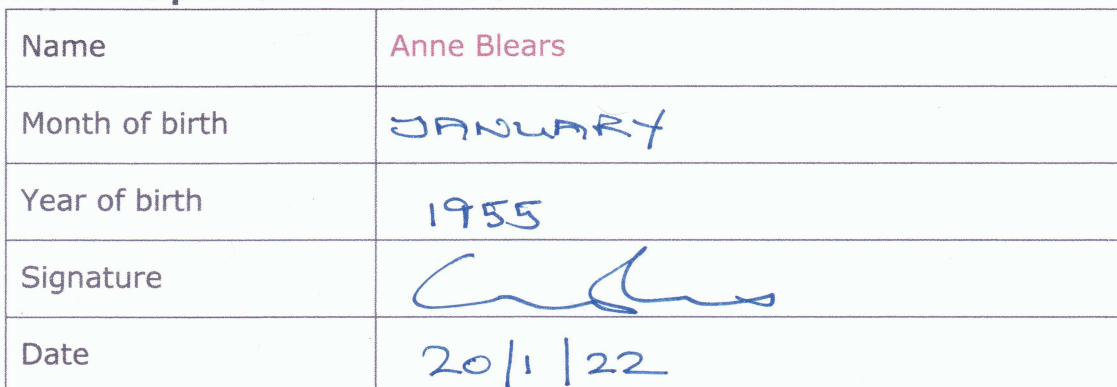 Name Anne Blears
Month of birth JANUARY
Year of birth 1955
Signature
Date 20/1/22